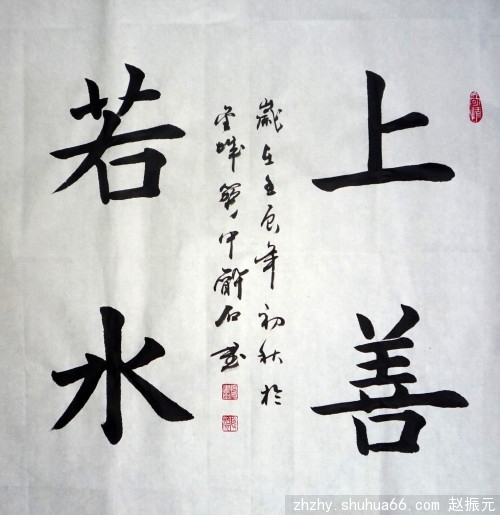 上善
若水
岁在壬辰年初秋於
中
石
zhzhy.shuhua66.com 赵振元